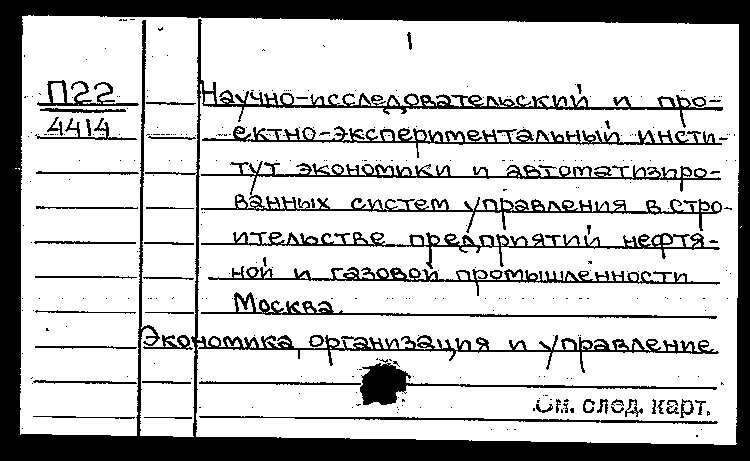 1
П22
4414
Научно-исследовательский и про-
ектно-экспериментальный инсти-
тут экономики и автоматизиро-
ванных систем управления в стро-
ительстве предприятий нефтя-
ной и газовой промышленности
Москва.
Экономика, организация и управление
См. след. карт.